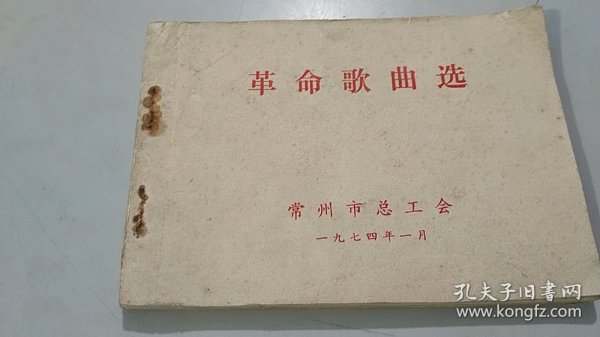 革命歌曲选
常州市总工会
一九七四年一月
孔夫子旧書网
www.kongfz.com